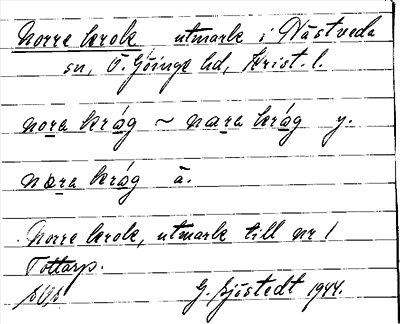 Norre krok utmark i Nästveda
sn, Ö. Göinge hd, Krist. l.
nora króg ~ nara króg y.
næra króg ä.
Norre krok, utmark till nr 1
Tottarp.
G. Sjöstedt 1944.